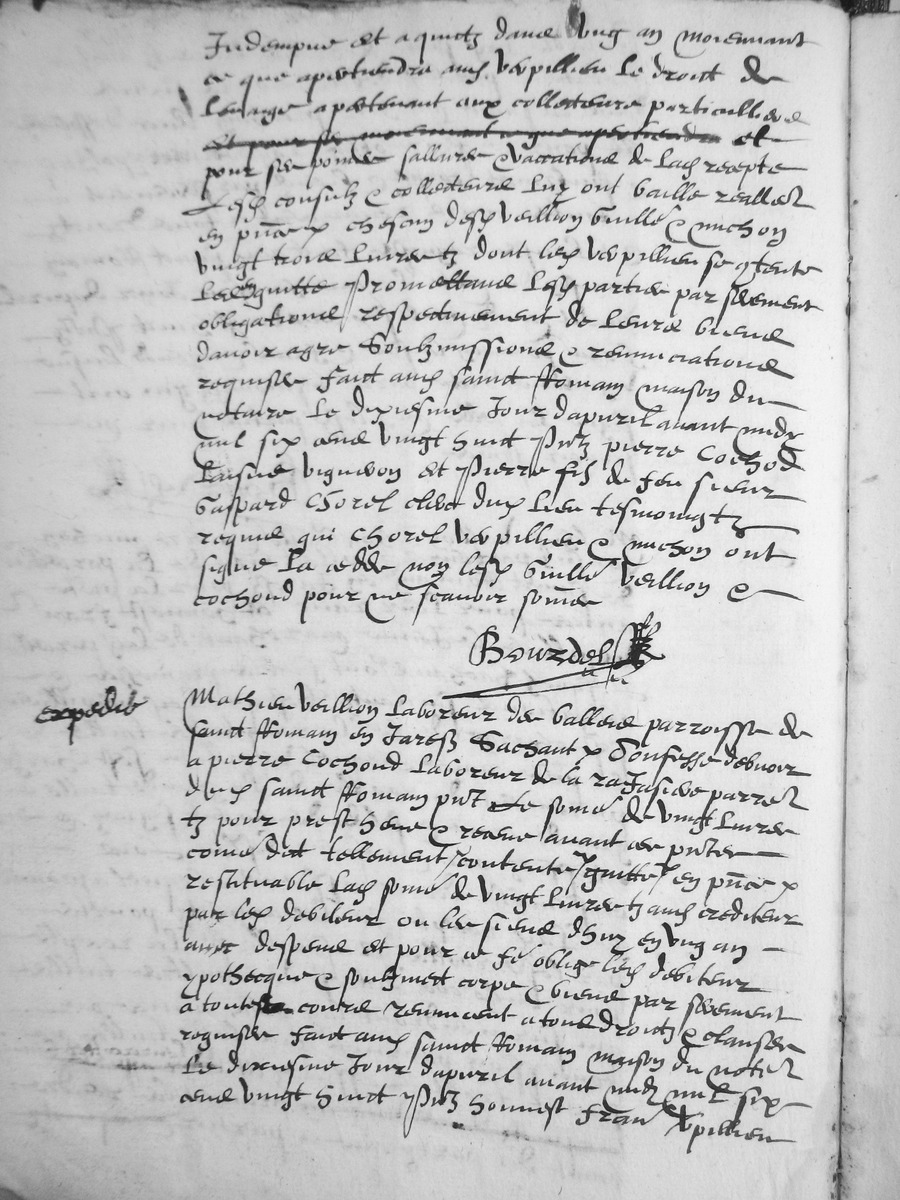 Indempne et aquictz dans ung an moiennant
ce que apertiendra aud Verpillieu le droict de
levaige apertenant aux collecteurs particulliers
et pour ses moiennant ce que apertiendra et
pour ses poines sallures & vaccations de lad recepte
Lesd consulz & collecteurs luy ont baille reallet
en pnce chescun desd Veillion Guille & Michon
vingt trois livres tz dont led Verpillieu se contente
Les quitte Promettans lesd parties par serement
obligations respectivement de leurs biens
davoir agre soubzmissions & renunciations
requises faict aud sainct Romain maison du
notaire le dixiesme Jour dapvril avant midy
mil six cens vingt huict Pntz pierre Cochod
laisne vigneron et Pierre filz de feu sieur
Gaspard Chorel clerc dud lieu tesmoingtz
requis qui Chorel Verpillieu & Michon ont
signe la cedde non lesd Guille Veillion &
cochoud pour ne scavoir somes
Bourdel
expedie
Mathieu Veillion Laboreur de Vallens parroisse de
sainct Romain en Jarestz Sachant Confesse debvoir
a pierre Cochoud Laboreur de la parret
dud sainct Romain pnt Le some de vingt livres
tz pour prest heue & receue avant ces pntes
come dit tellement contente quitte en pnce
restituable lad some de vingt livres tz aud crediteur
par led debiteur ou les siens dhuy en ung an
avec despens et pour ce fe oblige led debiteur
ypothecque & soubzmect corps & biens par serement
a toutes contre renuncent a tous droictz & clauses
requises faict aud sainct Romain maison du notet
Le dixiesme Jour dapvril avant midy mil six
cens vingt huict Pntz honnest Fran Verpillieu